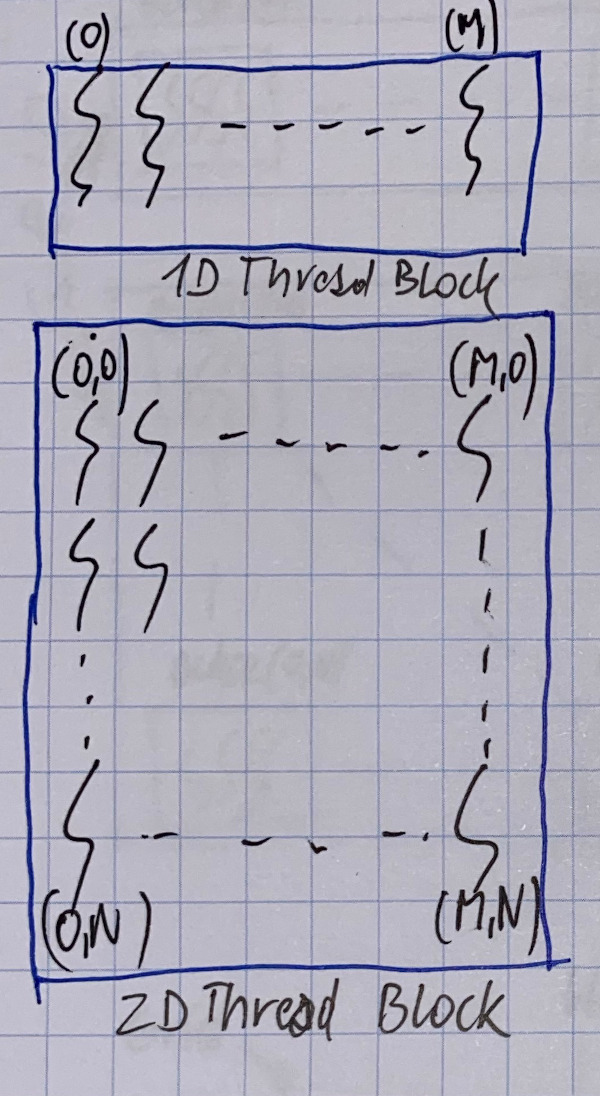 (0) (M)
1D Thread Block
(0,0) (M,0)
(0,N) (M,N)
2D Thread Block